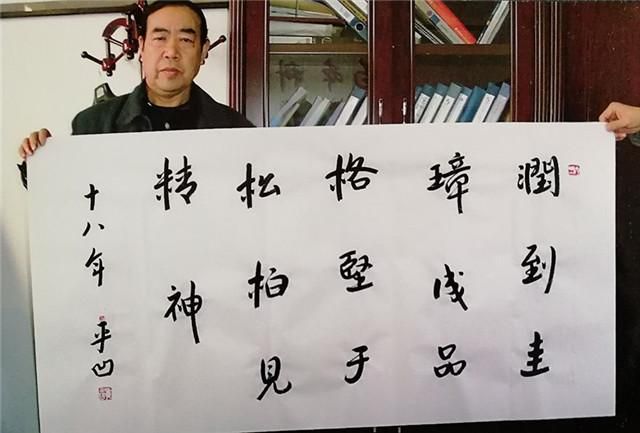 潤到圭
璋成品
格堅于
松柏見
精神
十八年 平凹